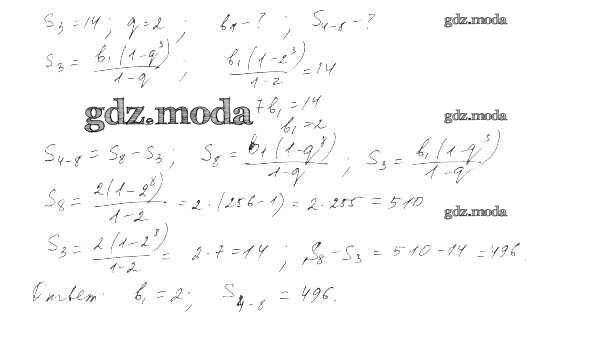 S₃ = 14; q = 2; b₁ - ?; S₄₋₈ - ? gdz.moda
S₃ = b₁(1-q³)/1-q; b₁(1-2³)/1-2 = 14
7b₁ = 14
gdz.moda gdz.moda
b₁ = 2
S₄₋₈ = S₈ - S₃; S₈ = b₁(1-q⁸)/1-q; S₃ = b₁(1-q³)/1-q
S₈ = 2(1-2⁸)/1-2 = 2·(256-1) = 2·255 = 510
gdz.moda
S₃ = 2(1-2³)/1-2 = 2·7 = 14; S₈ - S₃ = 510 - 14 = 496.
Ответ: b₁ = 2; S₄₋₈ = 496.